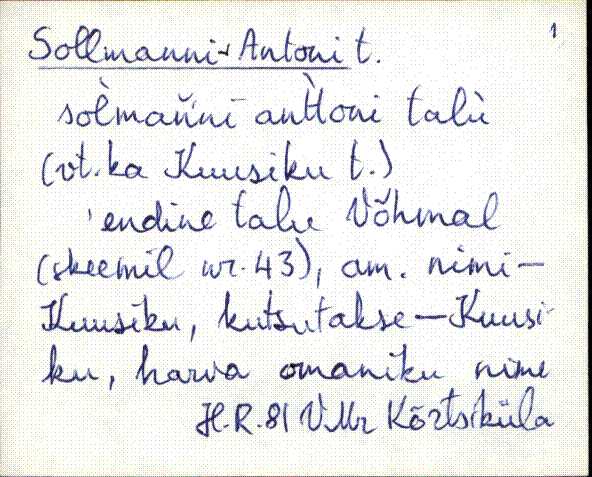 1
Sollmanni-Antoni t.
solmannī anttoni talù
(vt. ka Kuusiku t.)
'endine talu Võhmal
(skeemil nr. 43), am. nimi-
Kuusiku, kutsutakse - Kuusi-
ku, harva omaniku nime
H.R. 81 VMr Kõrtsiküla